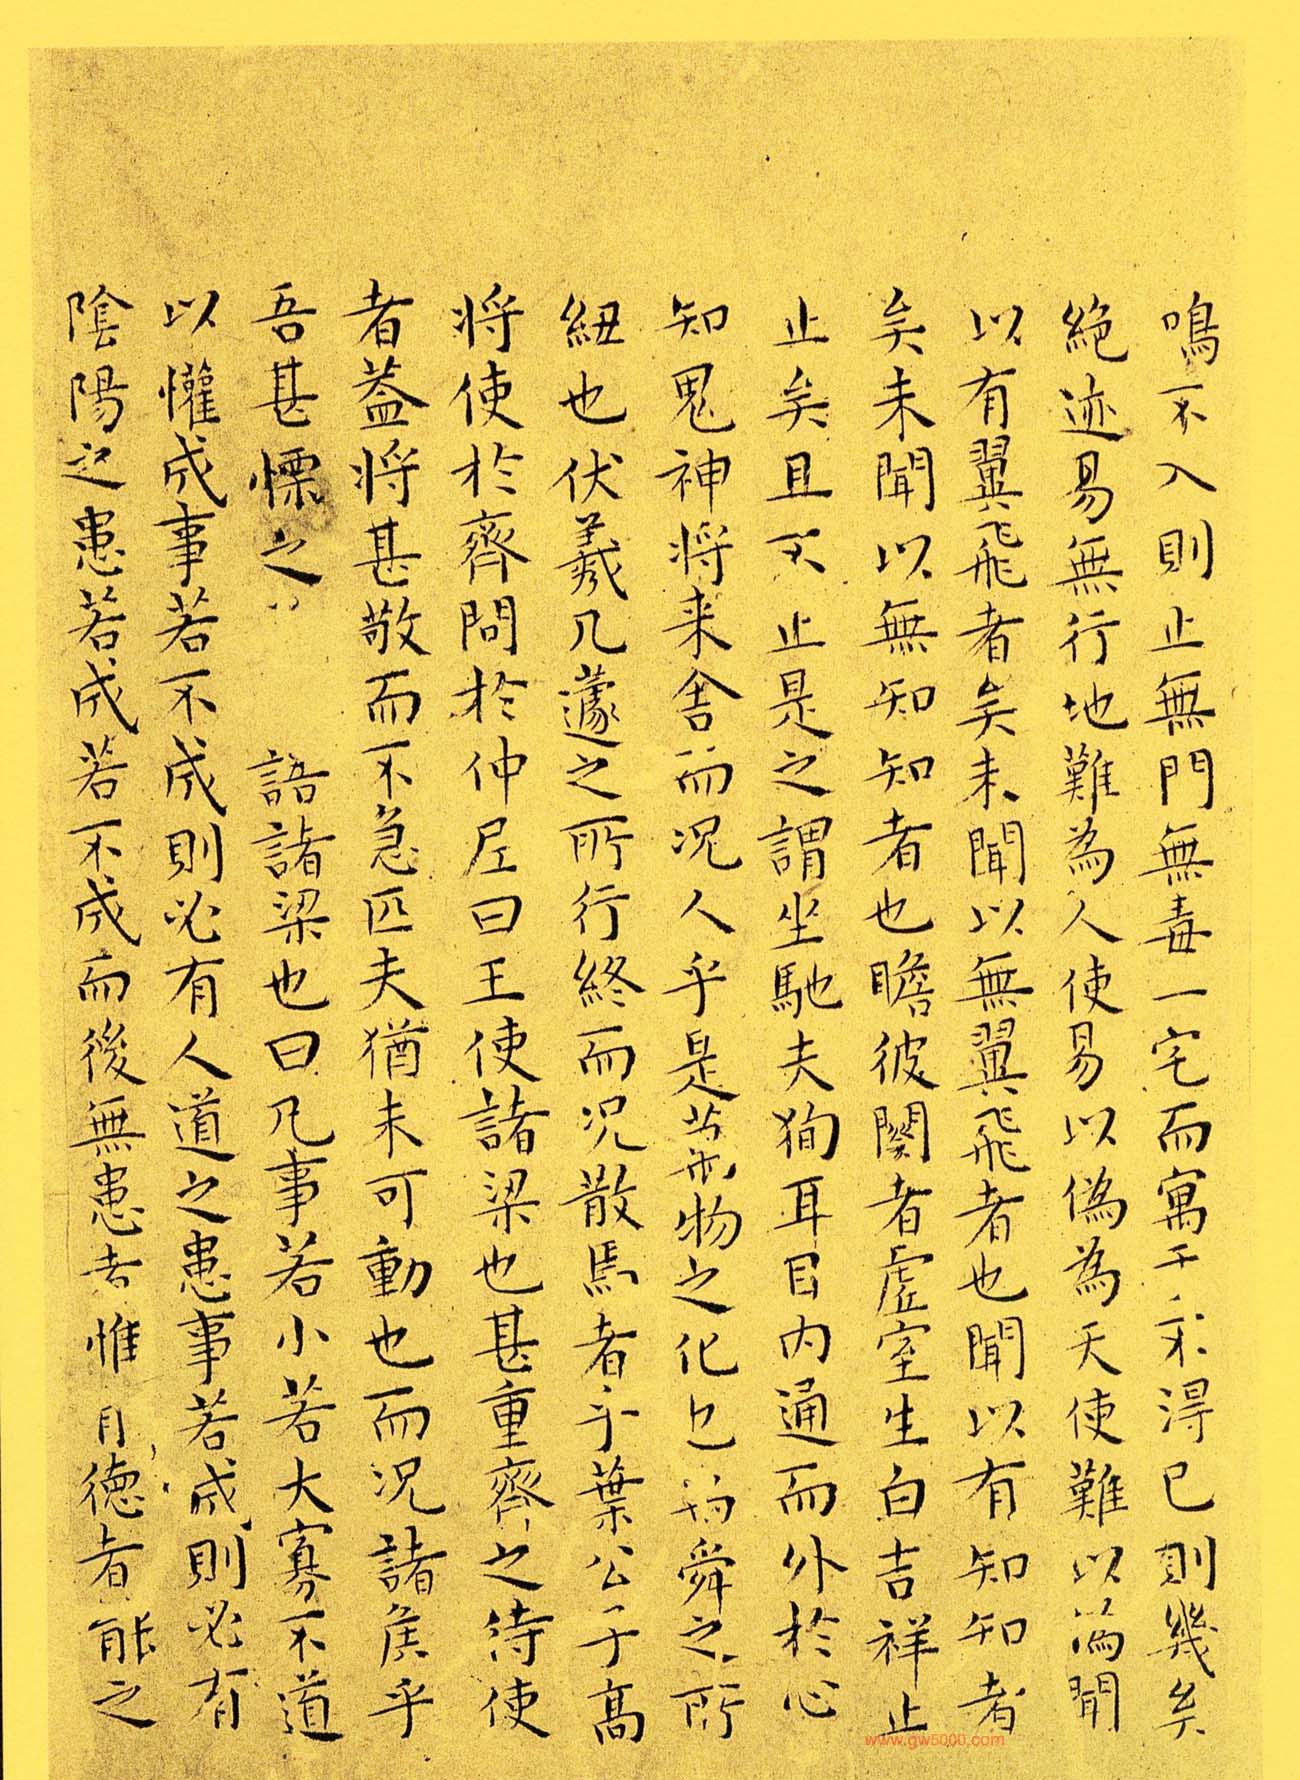 鳴不入則止無門無毒一宅而寓于不得已則幾矣
絕迹易無行地難為人使易以偽為天使難以偽聞
以有翼飛者矣未聞以無翼飛者也聞以有知知者
矣未聞以無知知者也瞻彼闋者虛室生白吉祥止
止矣且不止是之謂坐馳夫狥耳目內通而外於心
知鬼神將来舍而况人乎是萬物之化也禹舜之所
紐也伏羲几蘧之所行終而况散焉者乎葉公子高
将使於齊問於仲尼曰王使諸梁也甚重齊之待使
者蓋将甚敬而不急匹夫猶未可動也而况諸侯乎
吾甚慄之 語諸梁也曰凡事若小若大寡不道
以懽成事若不成則必有人道之患事若成則必有
陰陽之患若成若不成而後無患者惟有德者能之
www.gw5000.com